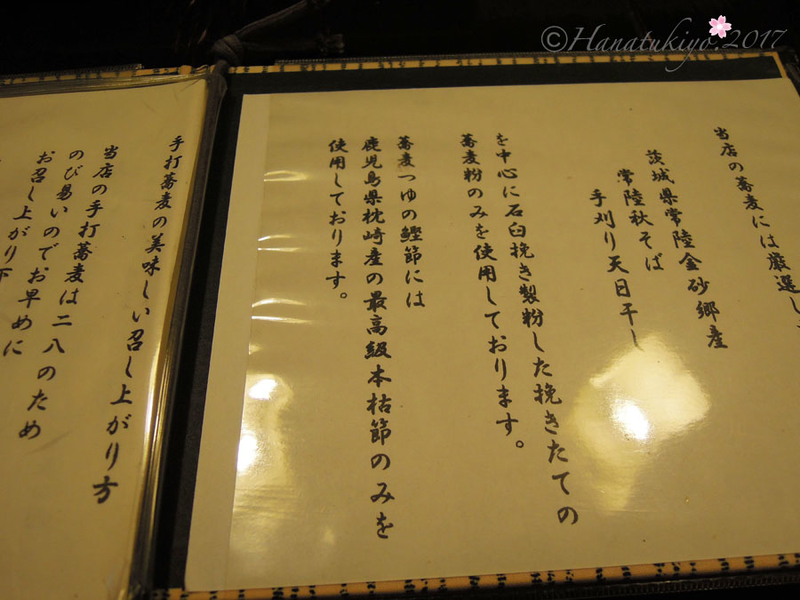 ©Hanatukiyo.2017
当店の蕎麦には厳選し
茨城県常陸金砂郷産
常陸秋そば
手刈り天日干し
を中心に石臼挽き製粉した挽きたての
蕎麦粉のみを使用しております。
蕎麦つゆの鰹節には
鹿児島県枕崎産の最高級本枯節のみを
使用しております。
手打蕎麦の美味しい召し上がり方
当店の手打蕎麦は二八のため
のび易いのでお早めに
お召し上がり下